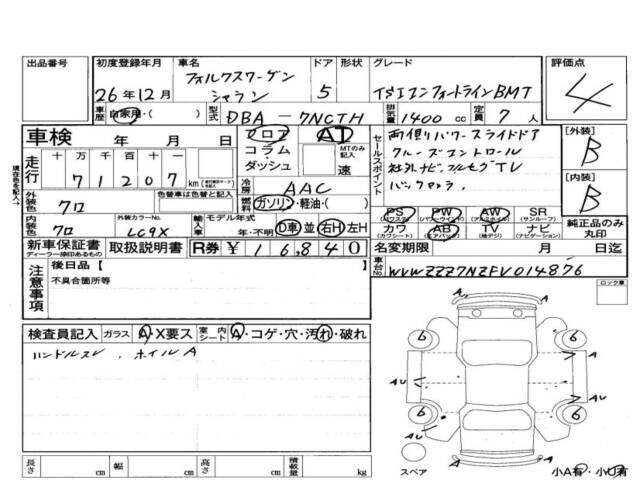 出品番号 初度登録年月 車名 ドア 形状 グレード 評価点
26年12月 フォルクスワーゲン シャラン 5 TSIコンフォートラインBMT 4
車歴 自家用・( ) 型式 DBA - 7NCTH 排気量 1400 cc 定員 7 人
車検 年 月 日 フロア AT セールスポイント 両側パワースライドドア [外装]
コラム・ダッシュ MTのみ記入 速 クルーズコントロール B
走行 十万 千百十 7 1 2 0 7 km 社外ナビ、フルセグTV
冷房 AAC バックカメラ. [内装]
外装色 クロ 色替車は色替と記入 燃料 ガソリン・軽油・( ) B
PS (パワステ) PW (パワーウインド) AW (アルミホイル) SR (サンルーフ)
内装色 クロ 外装カラーNo. LC9X 輸入車 モデル年式 年・不明 D車 並 右H 左H
カワ (カワシート) AB (エアバック) TV (地デジ) ナビ (ナビゲーション) 純正品のみ丸印
新車保証書 ディーラー捺印あるもの 取扱説明書 R券 ¥ 16,840 名変期限 月 日迄
注意事項 後日品【 】 車台No. WVWZZZ7NZFV014876
不具合箇所等 ロック車
検査員記入 ガラス A・X要ス 室内シート A・コゲ・穴・汚れ・破れ
ハンドルスレ . ホイルA
6 6
A A
AU AU
6 6
A
スペア A 小A有・小U有
長さ cm 幅 cm 高さ cm 積載量 kg
現在色を記入→